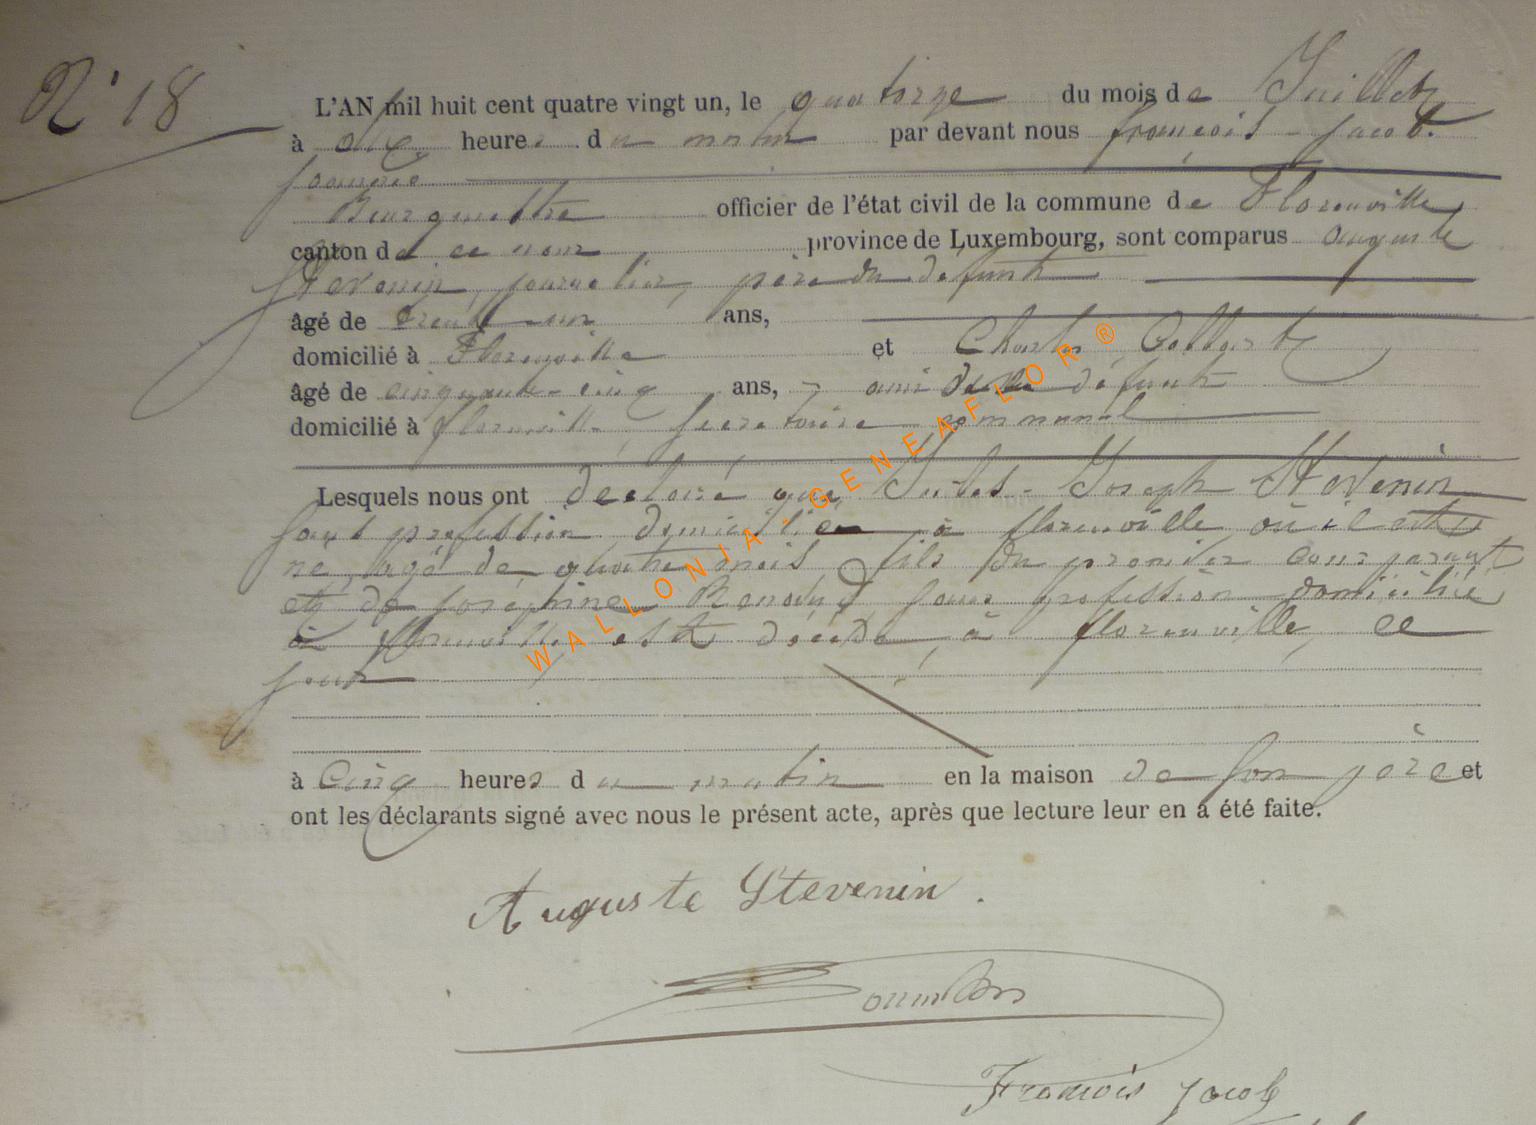 N° 18
L'AN mil huit cent quatre vingt un, le quatorze du mois de Juillet
à dix heures du matin par devant nous françois-jacob

Bourgmestre officier de l'état civil de la commune de Florenville
canton de ce nom province de Luxembourg, sont comparus auguste
Stevenin, journalier, père du défunt
âgé de trente-un ans,
domicilié à Florenville et Charles
âgé de cinquante-cinq ans, ami du défunt
domicilié à florenville, secrétaire communal
Lesquels nous ont déclaré que Jules-Joseph Stevenin
sans profession domicilié à florenville où il est
né, agé de quatre mois fils du premier comparant
et de joséphine sans profession domiciliée
à florenville est décédé à florenville, ce
jour
à Cinq heures du matin en la maison de son père et
ont les déclarants signé avec nous le présent acte, après que lecture leur en a été faite.
Auguste Stevenin.
François Jacob
WALLONIA-GENEAFLOR®